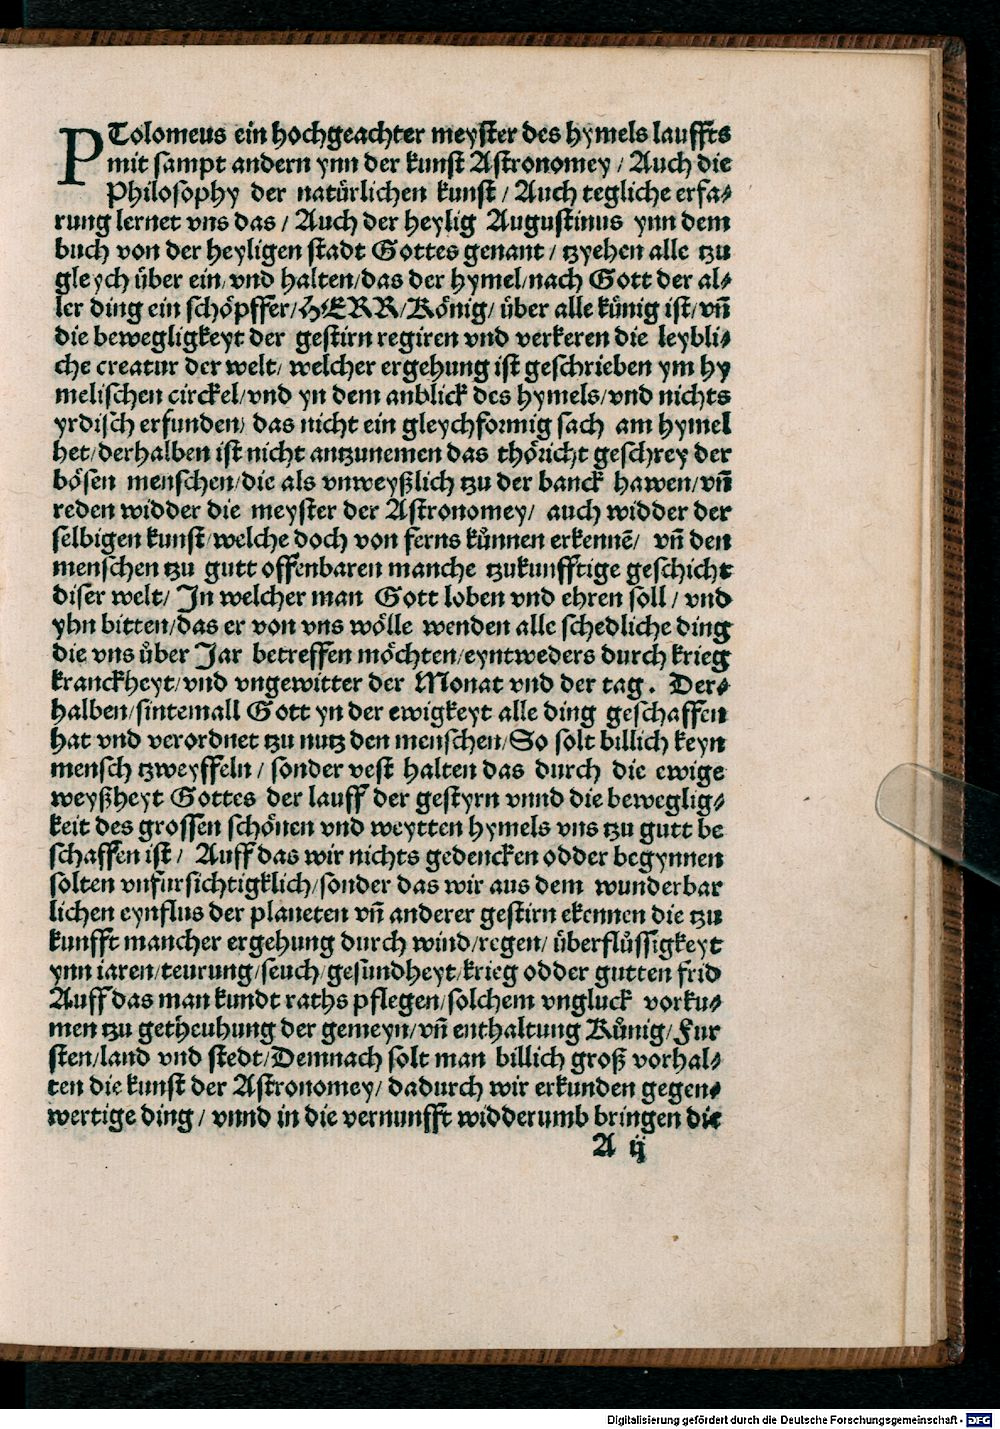 PTolomeus ein hochgeachter meyster des hymels lauffts
mit sampt andern ynn der kunst Astronomey / Auch die
Philosophy der natürlichen kunst / Auch tegliche erfa⸗
rung lernet vns das / Auch der heylig Augustinus ynn dem
buch von der heyligen stadt Gottes genant / tzyehen alle tzu
gleych über ein/ vnd halten/das der hymel/nach Gott der al⸗
ler ding ein schöpffer/HERR/König/ über alle künig ist/vn̄
die bewegligkeyt der gestirn regiren vnd verkeren die leybli⸗
che creatur der welt/ welcher ergehung ist geschrieben ym hy
melischen circkel/vnd yn dem anblick des hymels/vnd nichts
yrdisch erfunden/ das nicht ein gleychformig sach am hymel
het/derhalben ist nicht antzunemen das thöricht geschrey der
bösen menschen/die als vnweyßlich tzu der banck hawen/vn̄
reden widder die meyster der Astronomey/ auch widder der
selbigen kunst/welche doch von ferns kůnnen erkennē/ vn̄ den
menschen tzu gutt offenbaren manche tzukunfftige geschicht
diser welt/ In welcher man Gott loben vnd ehren soll / vnd
yhn bitten/das er von vns wölle wenden alle schedliche ding
die vns ůber Jar betreffen möchten/eyntweders durch krieg
kranckheyt/vnd vngewitter der Monat vnd der tag. Der⸗
halben/sintemall Gott yn der ewigkeyt alle ding geschaffen
hat vnd verordnet tzu nutz den menschen/So solt billich keyn
mensch tzweyffeln / sonder vest halten das durch die ewige
weyßheyt Gottes der lauff der gestyrn vnnd die beweglig⸗
keit des grossen schönen vnd weytten hymels vns tzu gutt be
schaffen ist / Auff das wir nichts gedencken odder begynnen
solten vnfursichtigklich/sonder das wir aus dem wunderbar
lichen eynflus der planeten vn̄ anderer gestirn ekennen die tzu
kunfft mancher ergehung durch wind/regen/ überflůssigkeyt
ynn iaren/teurung/seuch/gesundheyt/krieg odder gutten frid
Auff das man kundt raths pflegen/solchem vngluck vorku⸗
men tzu getheuhung der gemeyn/vn̄ enthaltung Kůnig/Fur
sten/land vnd stedt/Demnach solt man billich groß vorhal⸗
ten die kunst der Astronomey/ dadurch wir erkunden gegen⸗
wertige ding / vnnd in die vernunfft widderumb bringen die
A ij
Digitalisierung gefördert durch die Deutsche Forschungsgemeinschaft - DFG